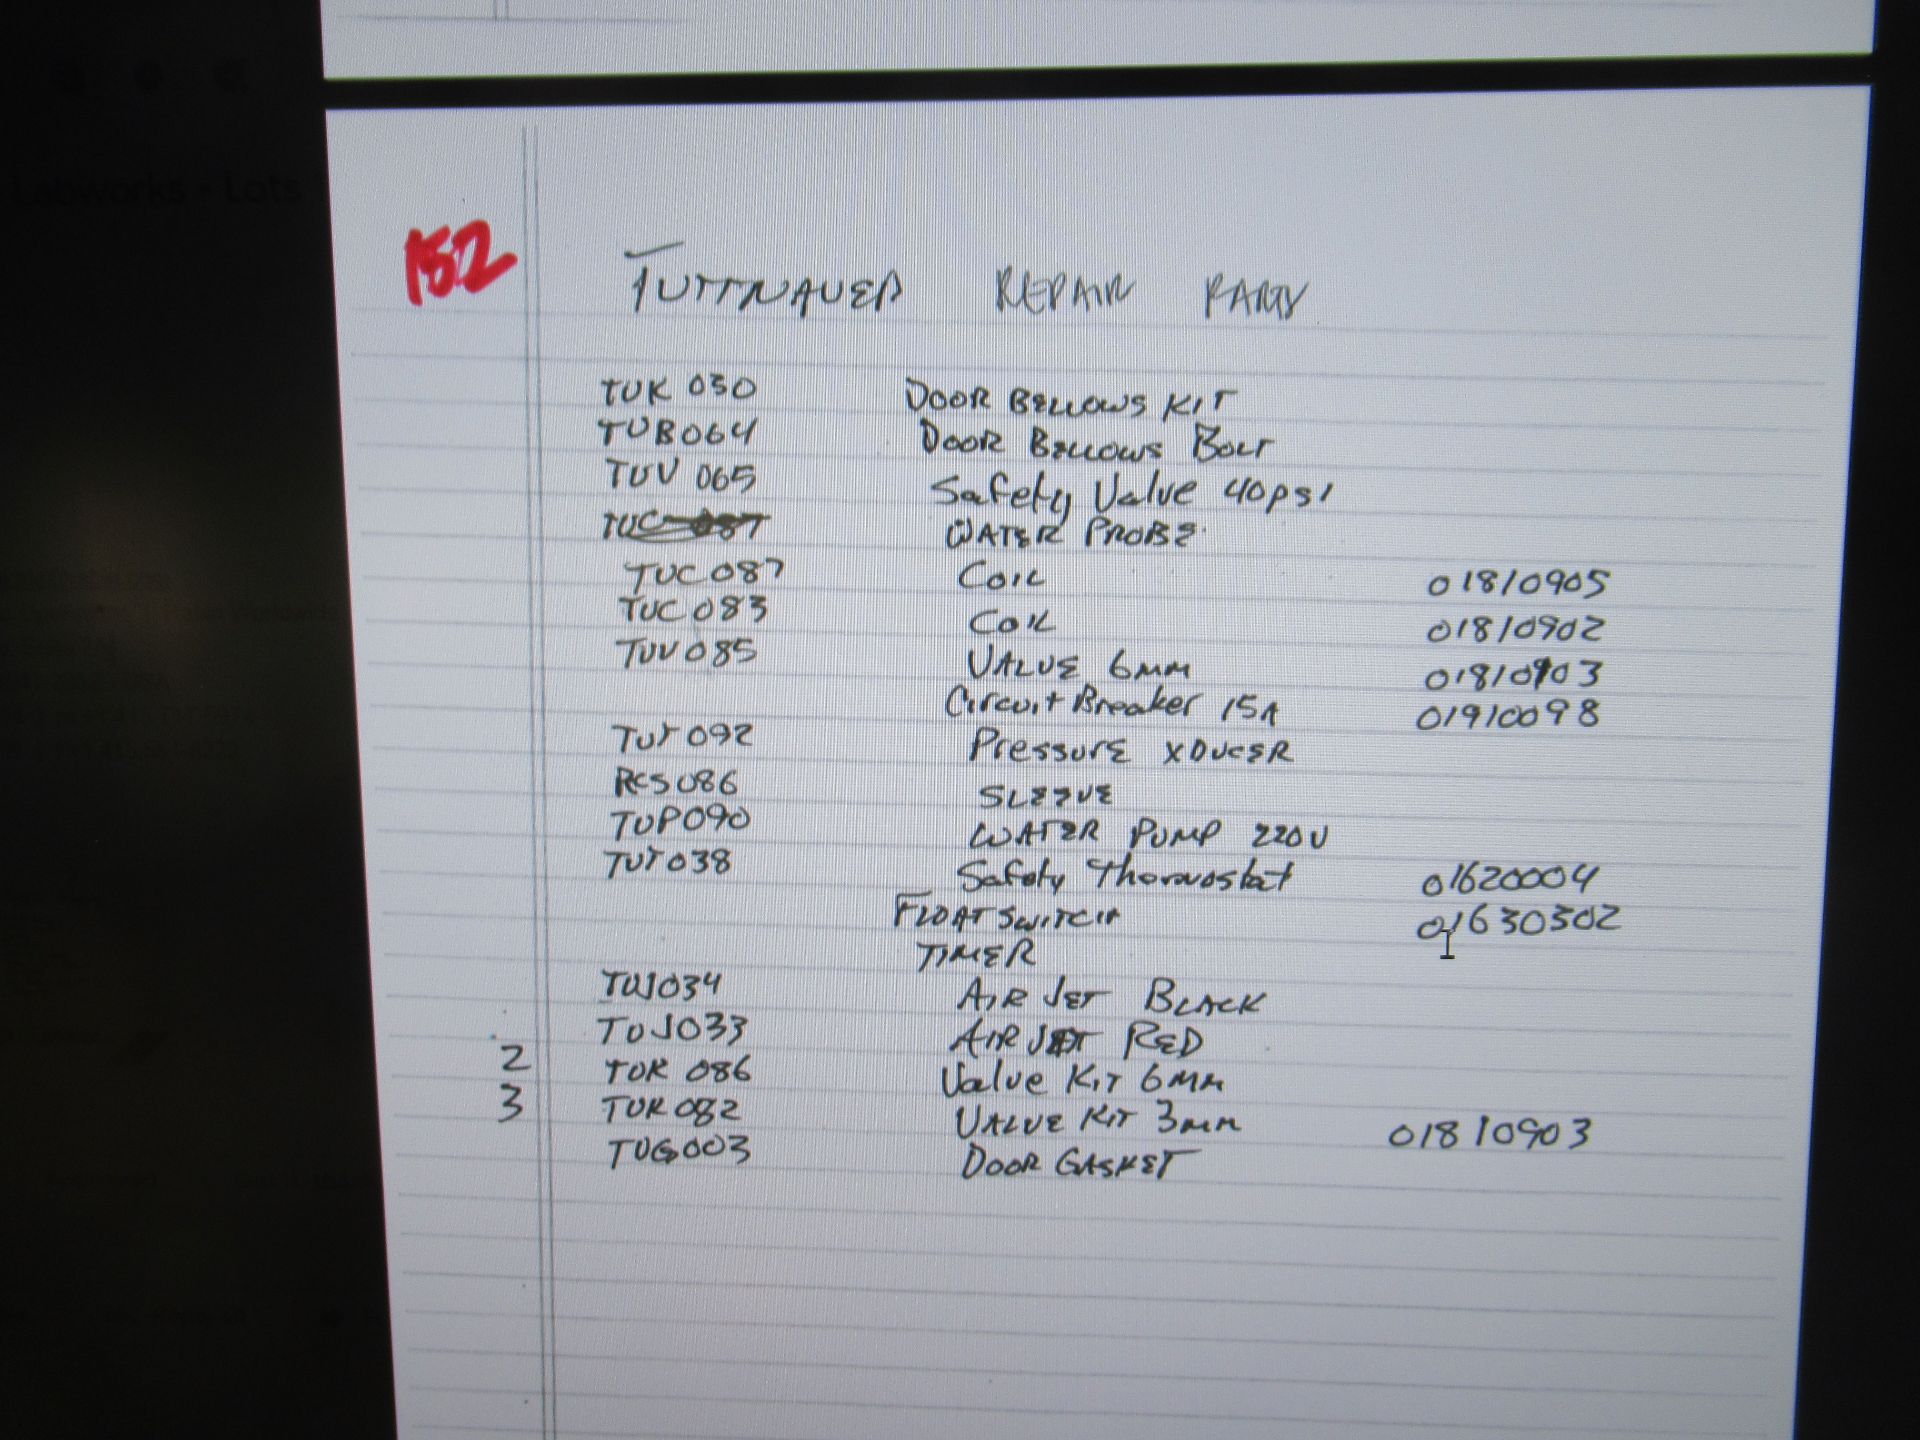 Labworks - Lots
152
TUTTNAUER REPAIR PARTS
TUK 030 DOOR BELLOWS KIT
TUB064 DOOR BELLOWS BOLT
TUV 065 Safety Valve 40psi
TUC 087 WATER PROBE
TUC087 COIL 01810905
TUC083 COIL 01810902
TUV085 VALVE 6MM 01810903
Circuit Breaker 15A 01910098
TUT092 Pressure XDUCER
RCS086 SLEEVE
TUP090 WATER PUMP 220V
TUT038 Safety Thermostat 01620004
FLOAT SWITCH 01630302
TIMER
TUJ034 AIR JET BLACK
TUJ033 AIR JET RED
2 TUK 086 Valve KIT 6MM
3 TUK 082 VALVE KIT 3mm 01810903
TUG003 DOOR GASKET